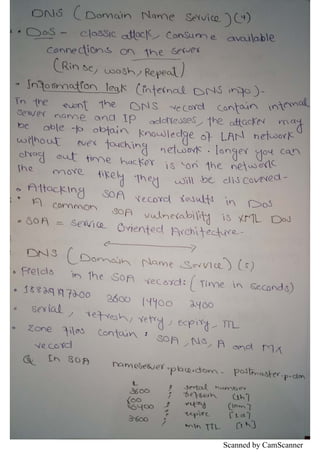 DNS ( Domain Name Service ) (4)
• DoS - classic attack, consume available
connections on the server
( Rinse, wash, Repeat )
- Information leak (internal DNS info) -
In the event the DNS record contain internal
server name and IP addresses, the attacker may
be able to obtain knowledge of LAN network
without ever touching network. longer you can
drag out time hacker is on the network
the more likely they will be discovered -
• Attacking SOA record results in DoS
• A common SOA vulnerability is XML DoS
• SOA = Service Oriented Architecture -
DNS ( Domain Name Service ) (5)
• Fields in the SOA record: (Time in seconds)
3600 14400 2400
• serial, refresh, retry, expiry, TTL
• zone files contain : SOA, NS, A and MX
record
Q In SOA nameserver.place.dom. postmaster.p.dom
; serial number
3600 ; refresh [1h]
600 ; retry [10m]
; expire [1d]
3600 ; min TTL [1h]
Scanned by CamScanner